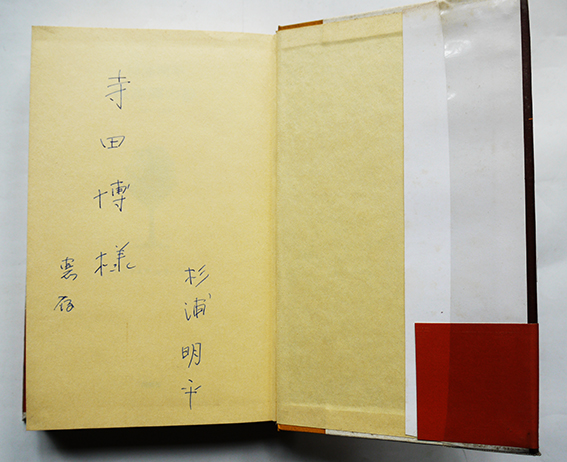 寺田博様
恵存
杉浦明平